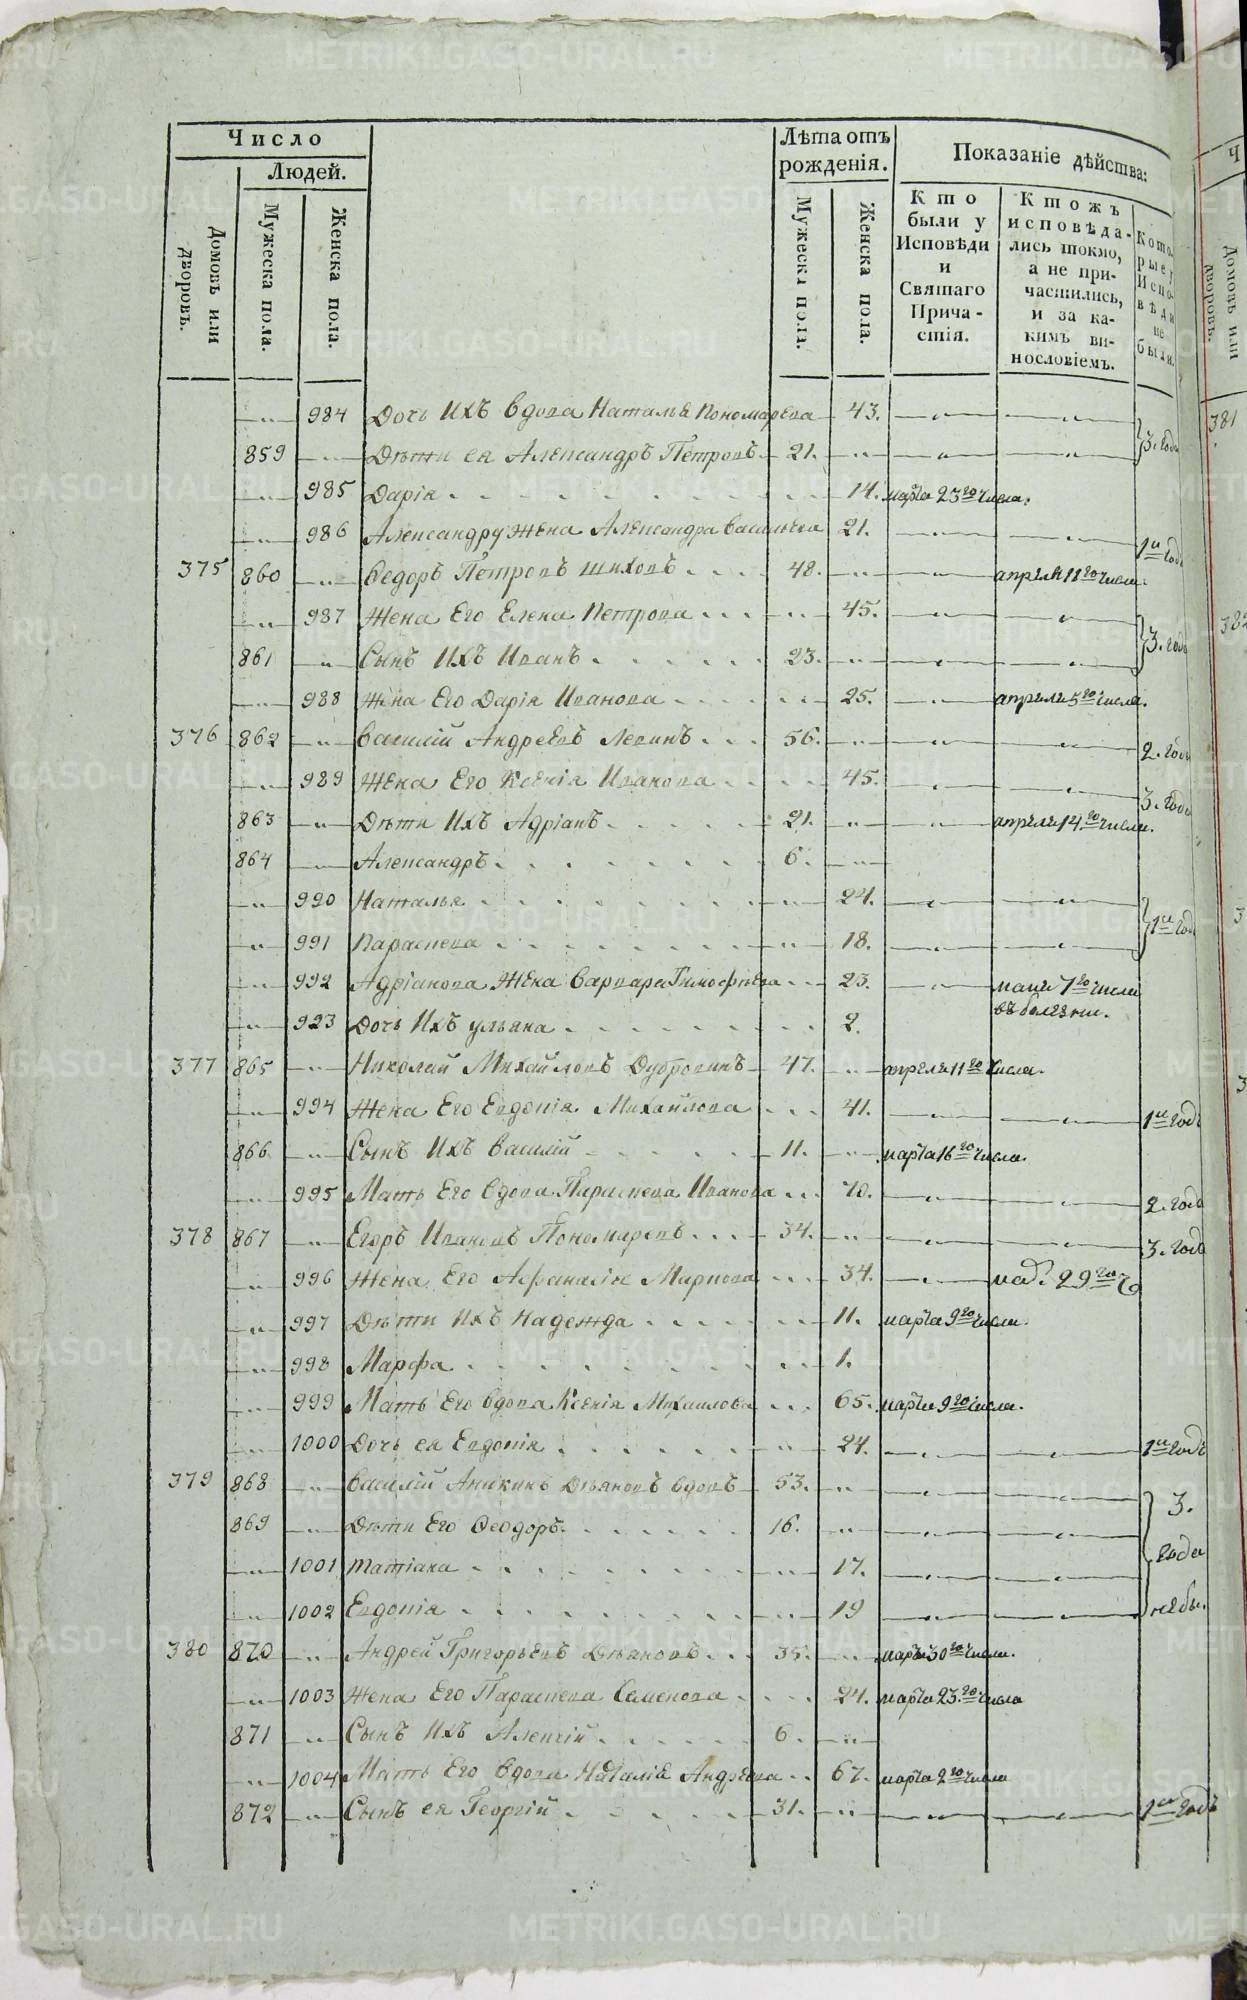 Число
Людей.
Домовъ или дворовъ.
Мужеска пола.
Женска пола.
Лѣта отъ рожденія.
Мужеска пола.
Женска пола.
Показаніе дѣйства:
Кто были у Исповѣди и Святаго Причастія.
Ктожъ исповѣдались токмо, а не причастились, и за какимъ винословіемъ.
Которые у Исповѣди не были.
984 Дочь Ихъ Вдова Наталья Пономарева 43. 3. года
859 Дѣти ея Александръ Петровъ 21.
985 Дарія 14. марта 23го числа.
986 Александру Жена Александра Васильева 21. 1й годъ
375 860 Ѳедоръ Петровъ Шиховъ 48. апрѣля 11го числа.
987 Жена Его Елена Петрова 45. 3. года
861 Сынъ Ихъ Иванъ 23.
988 Жена Его Дарія Иванова 25. апреля 5го числа.
376 862 Василій Андреевъ Левинъ 56. 2. года
989 Жена Его Ксенія Иванова 45. 3. года
863 Дѣти Ихъ Адріанъ 21. апреля 14го числа.
864 Александръ 6.
990 Наталья 24. 1й годъ
991 Параскева 18.
992 Адріанова Жена Варвара Тимофѣева 23. маия 7го числа въ болезни.
923 Дочь Ихъ ульяна 2.
377 865 Николай Михайловъ Дубровинъ 47. апреля 11го числа.
994 Жена Его Евдокія Михайлова 41. 1й годъ
866 Сынъ Ихъ Василій 11. марта 16го числа.
995 Мать Его Вдова Параскева Иванова 70. 2. года
378 867 Егоръ Ивановъ Пономаревъ 34. 3. года
996 Жена Его Афанасія Маркова 34. 29го
997 Дѣти Ихъ Надежда 11. марта 9го числа.
998 Марфа 1.
999 Мать Его Вдова Ксенія Михаилова 65. марта 9го числа.
1000 Дочь ея Евдокія 24. 1й годъ
379 868 Василій Аникинъ Дьяковъ вдовъ 53. 3.
869 Дѣти Его Ѳеодоръ 16. года
1001 Татіана 17.
1002 Евдокія 19 не бы.
380 870 Андрей Григорьевъ Дьяковъ 35. марта 30го числа.
1003 Жена Его Параскева Семенова 24. марта 23го числа
871 Сынъ Ихъ Алексій 6.
1004 Мать Его Вдова Наталія Андреева 67. марта 2го числа
872 Сынъ ея Георгій 31. 1й годъ
381
382
METRIKI.GASO-URAL.RU